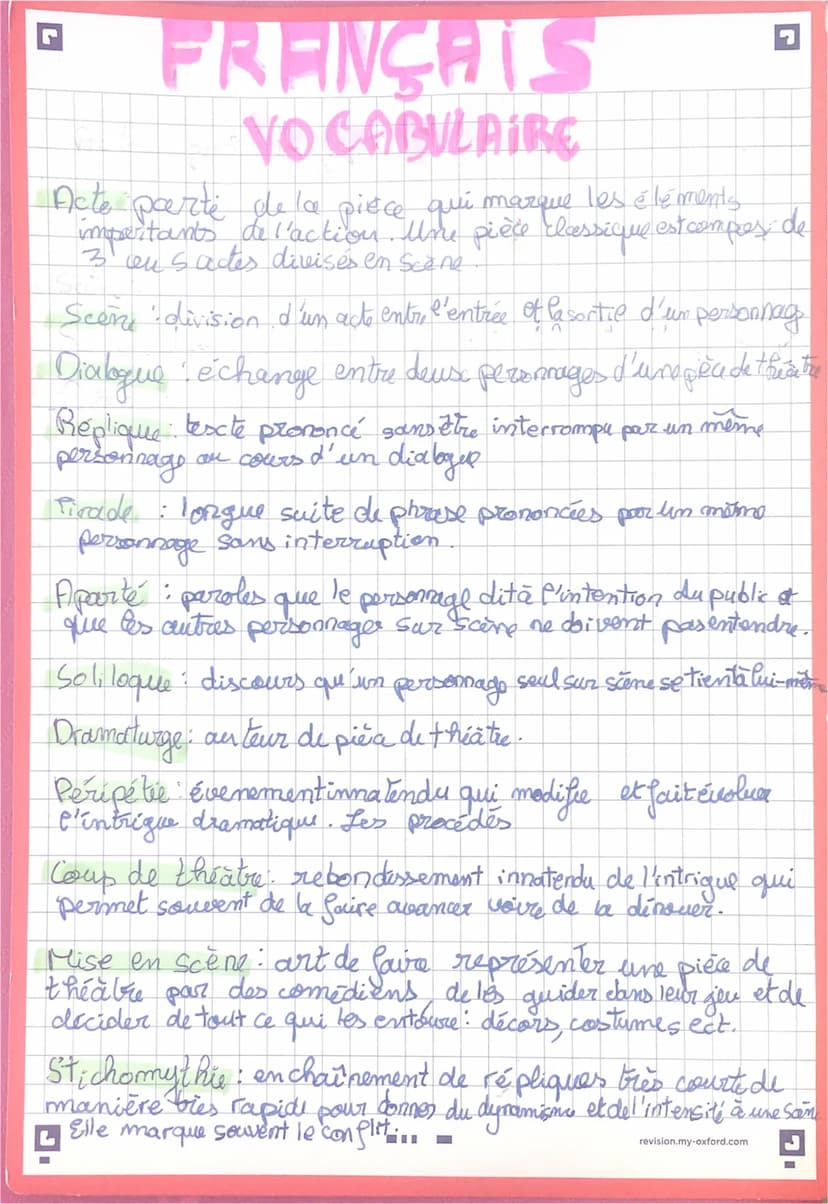 FRANÇAIS
VOCABULAIRE
Acte : partie de la pièce qui marque les éléments
importants de l'action. Une pièce classique est compos. de
3 ou 5 actes divisés en scène.
Scène : division d'un acte entre l'entrée et la sortie d'un personnag
Dialogue : échange entre deux personnages d'une pièce de théâtre
Réplique : texte prononcé sans être interrompu par un même
personnage au cours d'un dialogue
Tirade : longue suite de phrase prononcées par un même
personnage sans interruption.
Aparté : paroles que le personnage dit à l'intention du public et
que les autres personnages sur scène ne doivent pas entendre.
Soliloque : discours qu'un personnage seul sur scène se tient à lui-même
Dramaturge : auteur de pièce de théâtre.
Péripétie : évenement innatendu qui modifie et fait évoluer
l'intrigue dramatique. Les procédés
Coup de théâtre : rebondissement innatendu de l'intrigue qui
permet souvent de la faire avancer voire de la dénouer.
Mise en scène : art de faire représenter une pièce de
théâtre par des comédiens, de les guider dans leur jeu et de
décider de tout ce qui les entoure : décors, costumes ect.
Stichomythie : enchaînement de répliques très courte de
manière très rapide pour donner du dynamisme et de l'intensité à une scène
Elle marque souvent le conflit.
revision.my-oxford.com